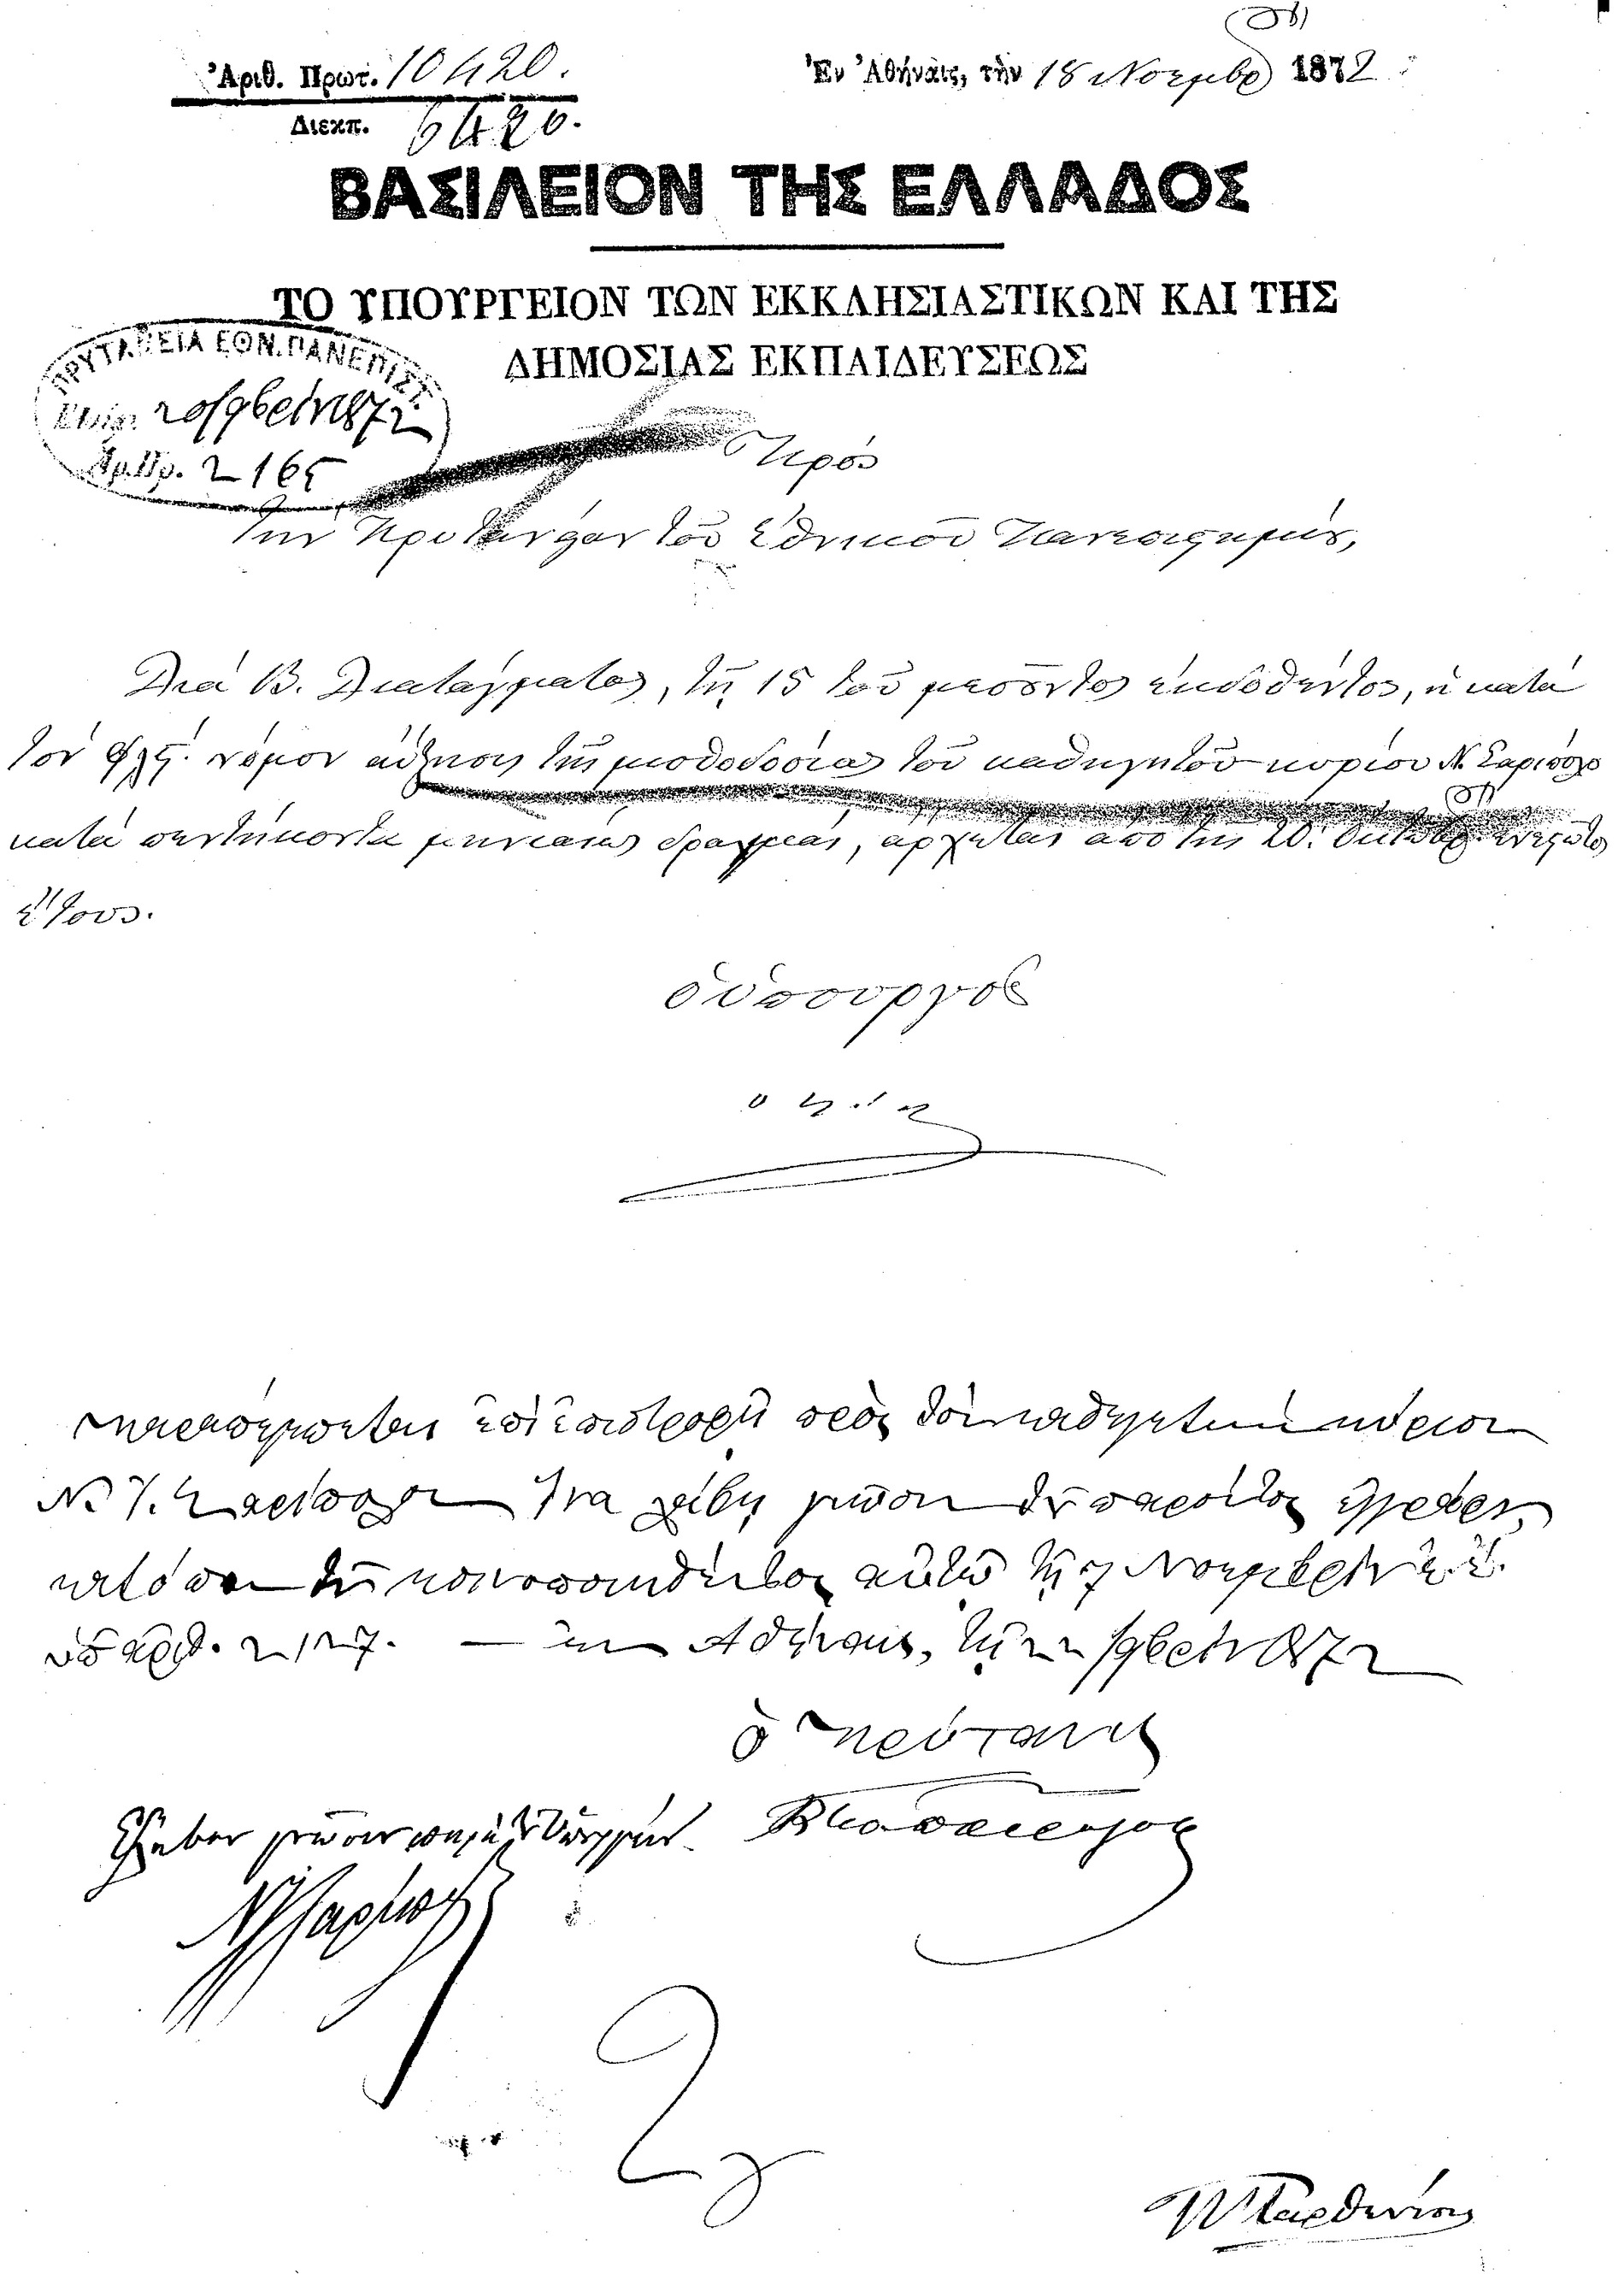 Ἀριθ. Πρωτ. 10420.
Διεκπ. 8420.
Ἐν Ἀθήναις, τὴν 18 Νοεμβρ 1872
ΒΑΣΙΛΕΙΟΝ ΤΗΣ ΕΛΛΑΔΟΣ
ΤΟ ΥΠΟΥΡΓΕΙΟΝ ΤΩΝ ΕΚΚΛΗΣΙΑΣΤΙΚΩΝ ΚΑΙ ΤΗΣ
ΔΗΜΟΣΙΑΣ ΕΚΠΑΙΔΕΥΣΕΩΣ
ΠΡΥΤΑΝΕΙΑ ΕΘΝ. ΠΑΝΕΠΙΣΤ.
20/9βρίου 1872
Ἀρ. Πρ. 2165
Πρὸς
τὴν Πρυτανείαν τοῦ Ἐθνικοῦ Πανεπιστημίου,
Διὰ Β. Διατάγματος, τῇ 15 τοῦ μεσοῦντος ἐκδοθέντος, ἡ κατὰ
τὸν νόμον αὔξησις τῆς μισθοδοσίας τοῦ καθηγητοῦ κυρίου Ν. Σαριπόλου
κατὰ πεντήκοντα μηνιαίως δραχμάς, ἄρχεται ἀπὸ τῆς 20. Ὀκτωβρ. ἐνεστῶτος
ἔτους.
ὁ ὑπουργὸς
Παραπέμπεται ἐπὶ ἐπιστροφῇ πρὸς τὸν καθηγητὴν κύριον
Ν. Ι. Σαρίπολον ἵνα λάβῃ γνῶσιν τοῦ παρόντος ἐγγράφου,
κατόπιν τοῦ κοινοποιηθέντος αὐτῷ τῇ 7 Νοεμβρίου ἐ. ἔ.
ὑπ' ἀριθ. 2127. — ἐν Ἀθήναις, τῇ 22/9βρίου 1872
ὁ Πρύτανις
Ἔλαβον γνῶσιν
Ν Ι Σαρίπολος
Π Παρθένιος